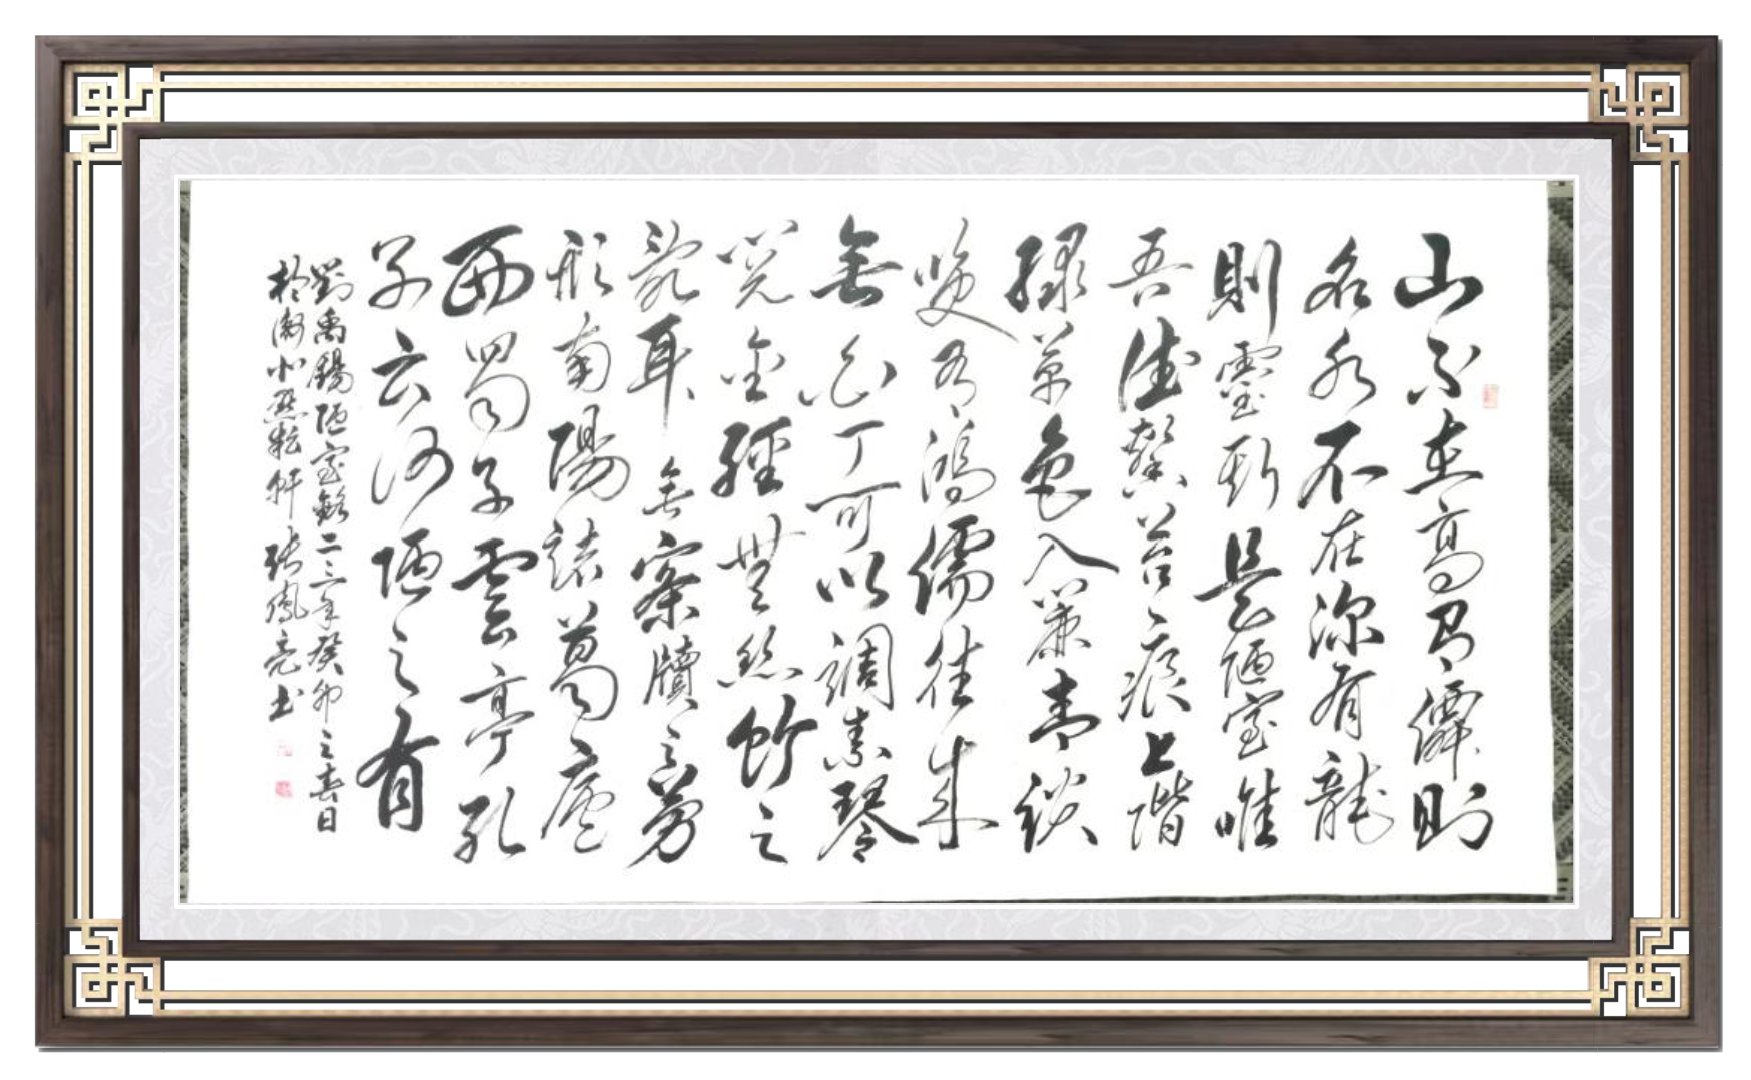 山不在高有僊則
名水不在深有龍
則靈斯是陋室唯
吾德馨苔痕上階
綠草色入簾青談
笑有鴻儒往來
無白丁可以調素琴
閱金經無絲竹之
亂耳無案牘之勞
形南陽諸葛廬
西蜀子雲亭孔
子云何陋之有
劉禹錫陋室銘二三年癸卯之春日
於耘軒張鳳亮书